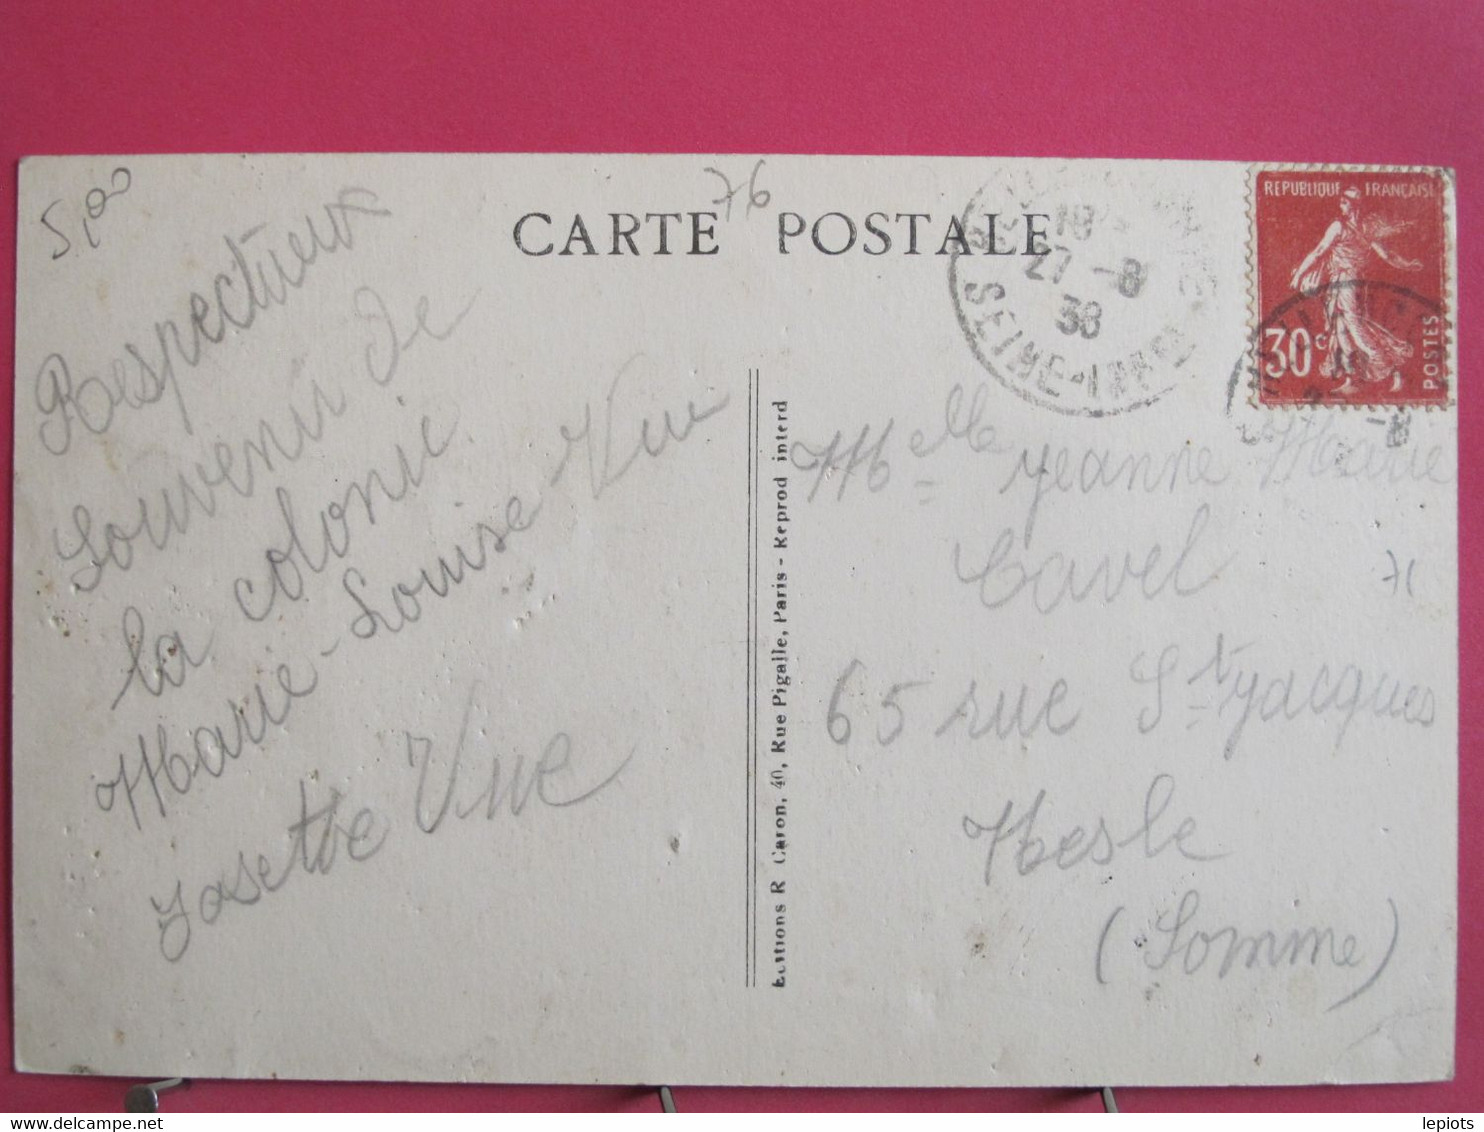 5,00
76
CARTE POSTALE
18
27 -8
38
SEINE-INFRE
REPUBLIQUE FRANÇAISE
30c
POSTES
Respectueux
Souvenir de
la colonie.
Marie-Louise Vue
Josette Vue
Editions R Caron, 40, Rue Pigalle, Paris - Reprod interd
Melle Jeanne Marie
Cavel
71
65 rue St Jacques
Nesle
(Somme)
lepiots